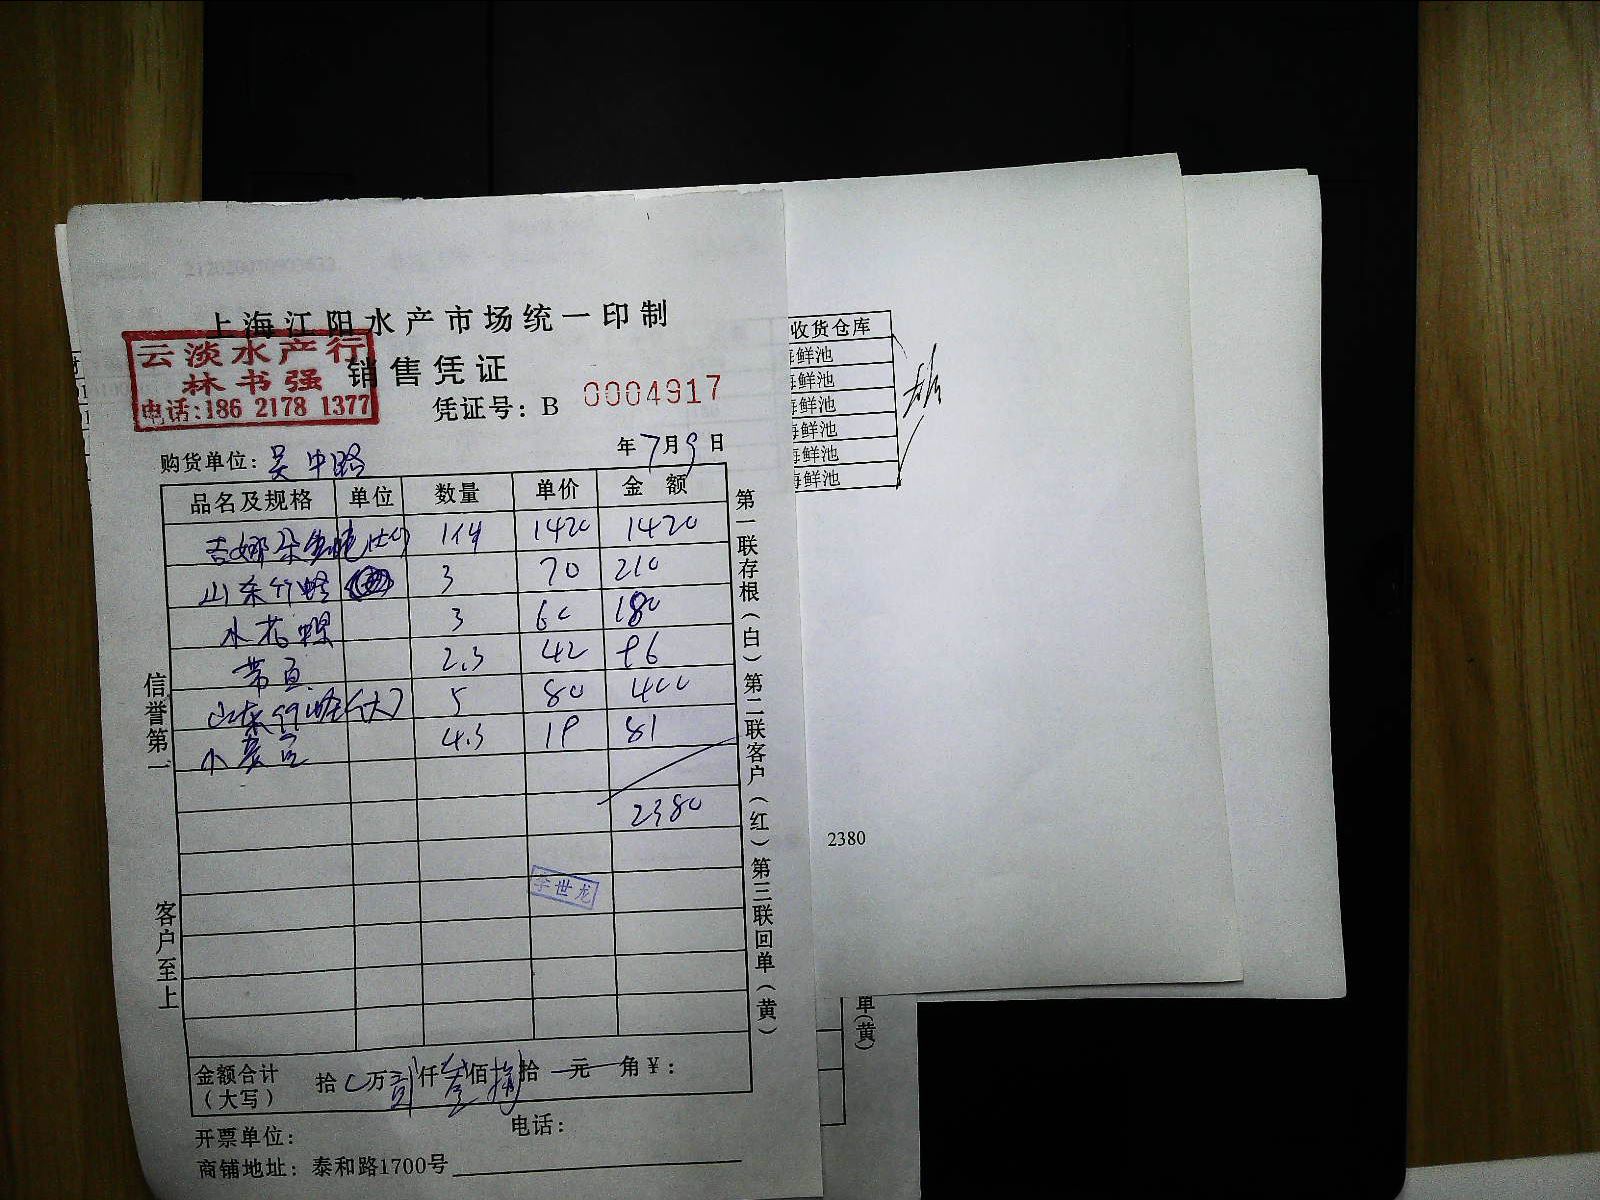 上海江阳水产市场统一印制
云淡水产行
林书强
电话:186 2178 1377
销售凭证
凭证号: B 0004917
购货单位: 吴中路 年7月9日
品名及规格 单位 数量 单价 金额
1420 1420
山东竹蛏 3 70 210
水花螺 3 60 180
2.3 42 96
山东竹蛏(大) 5 80 400
4.3 19 81
2380
李世龙
金额合计(大写) 拾 万贰仟叁佰捌拾 元 角¥:
开票单位: 电话:
商铺地址: 泰和路1700号
信誉第一
客户至上
第一联存根(白)第二联客户(红)第三联回单(黄)
收货仓库
海鲜池
海鲜池
海鲜池
海鲜池
海鲜池
海鲜池
2380
单(黄)